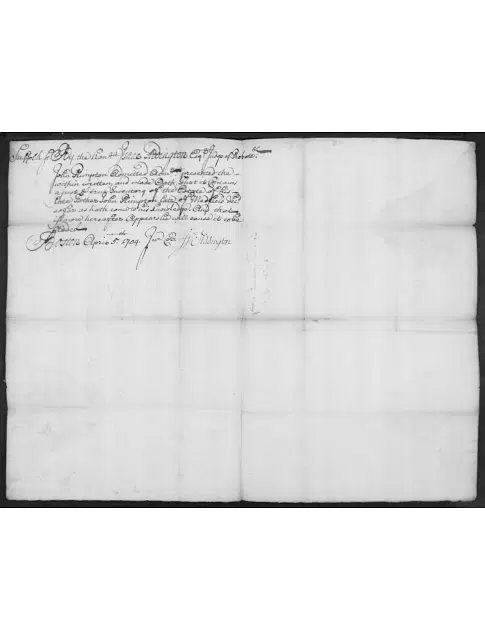 Suffolk ss By the Hon.ble Isaac Addington Esqr. Judge of Probate
John Plimpton Admitted Admr. presented the
within written, and made Oath, that it contains
a just & true Inventory of the Estate of his
late Father John Plimpton late of Medfield Decd
so far as hath come to his knowledge And that
if more hereafter Appears he will cause it to be
added
Boston April 5th 1704. Jur Co. Is: Addington